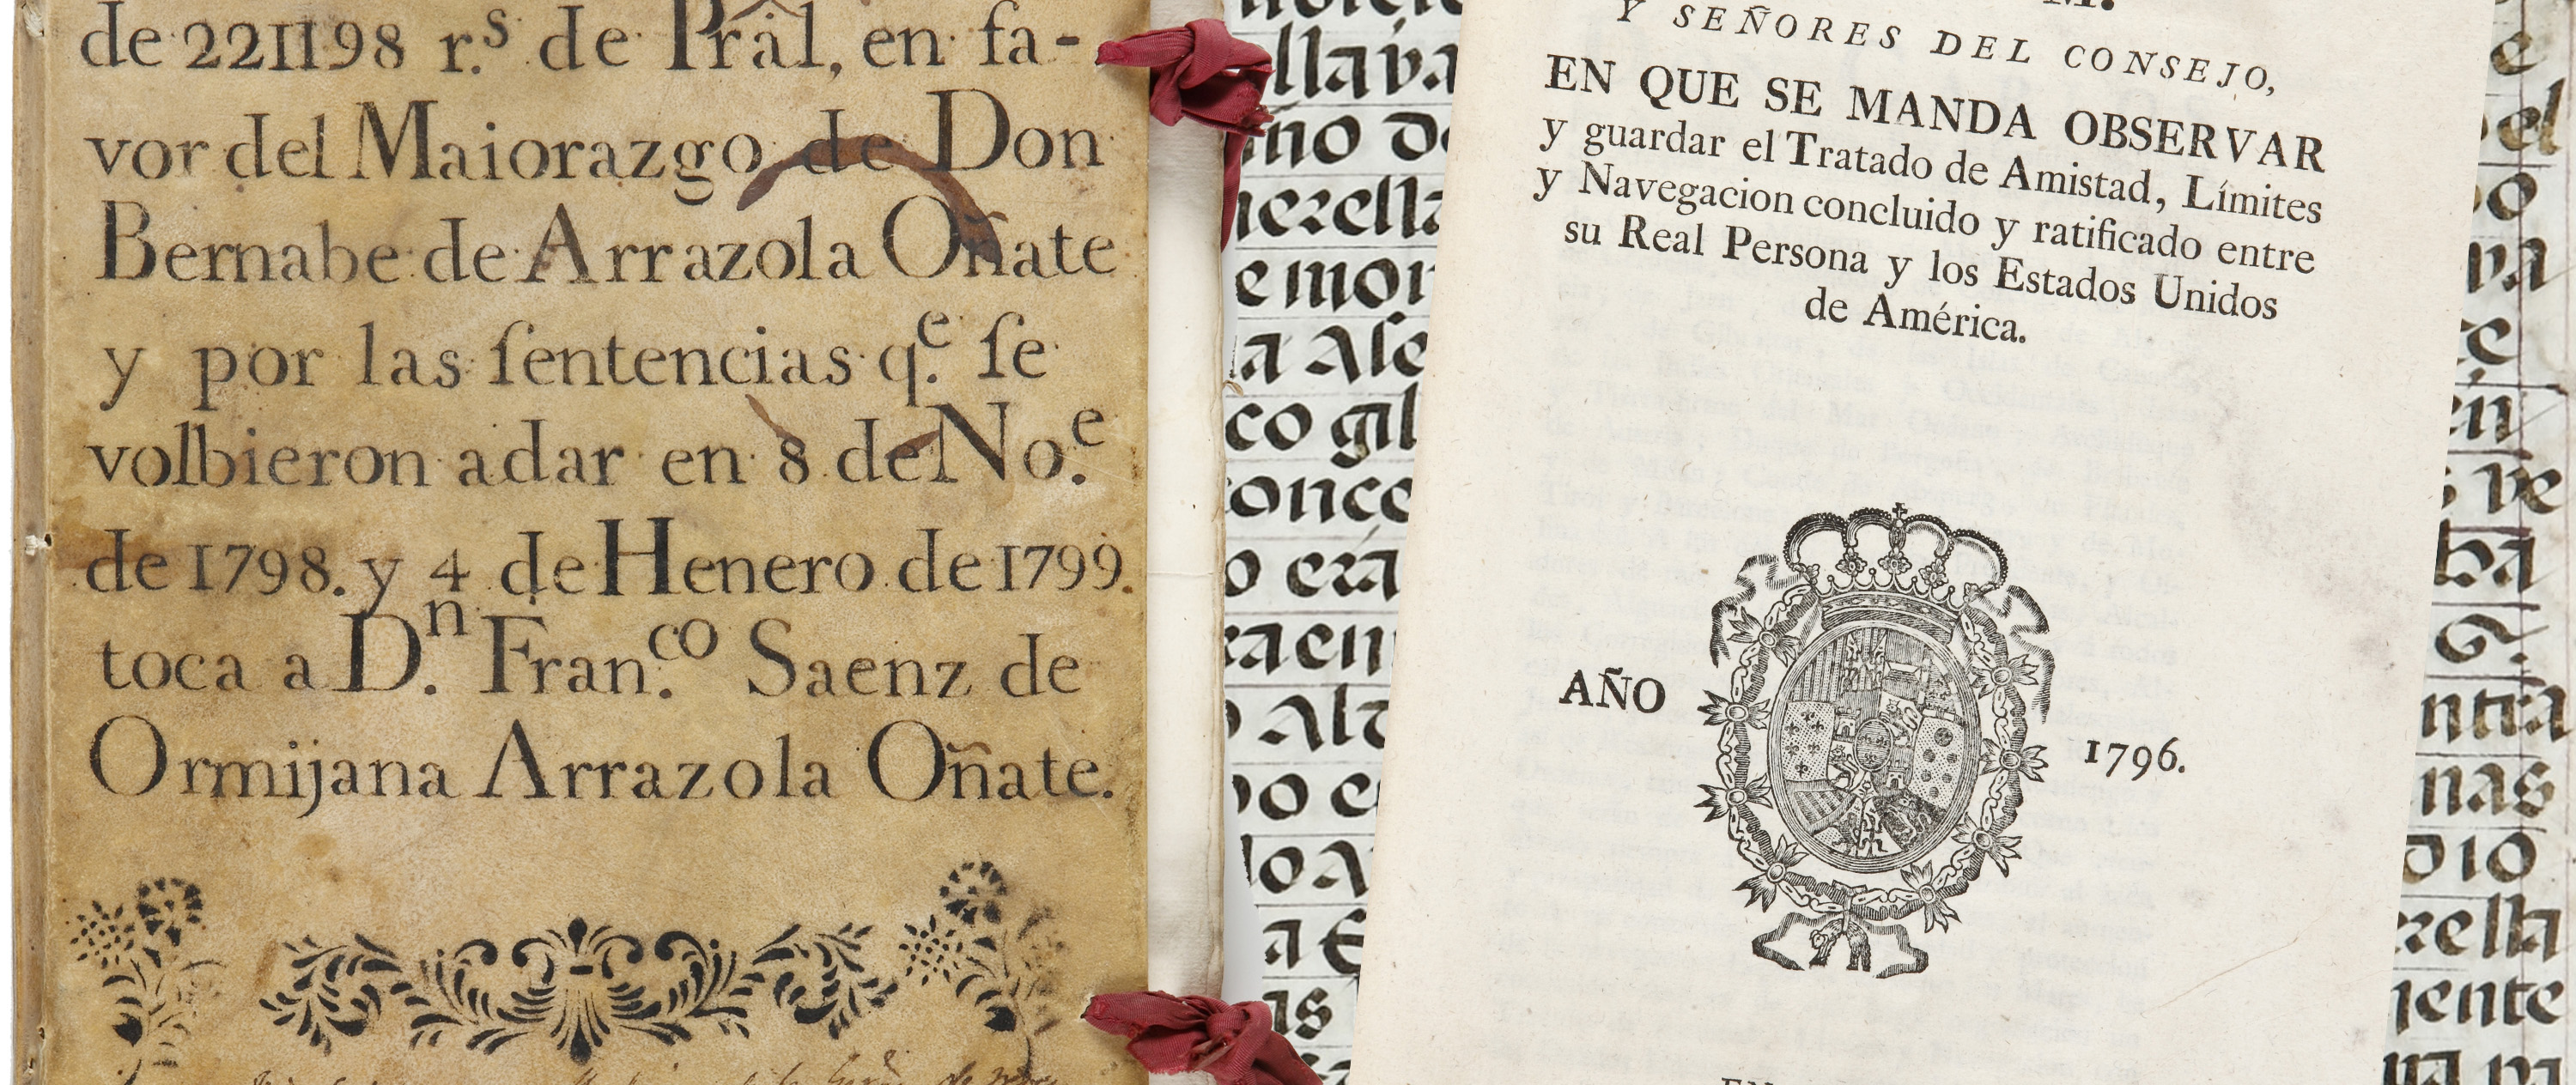 de 22II198 r.s de Prâl, en fa-
vor del Maiorazgo de Don
Bernabe de Arrazola Oñate
y por las ſentencias q.e ſe
volbieron adar en 8 de No.e
de 1798. y 4 de Henero de 1799.
toca a D.n Fran.co Saenz de
Ormijana Arrazola Oñate.
llava
no
erella
e mon
co gil
once
o era
en
o
a
as
M.
Y SEÑORES DEL CONSEJO,
EN QUE SE MANDA OBSERVAR
y guardar el Tratado de Amistad, Límites
y Navegacion concluido y ratificado entre
su Real Persona y los Estados Unidos
de América.
AÑO 1796.
EN
e
el
en
ba
ntra
nas
dio
rella
mente